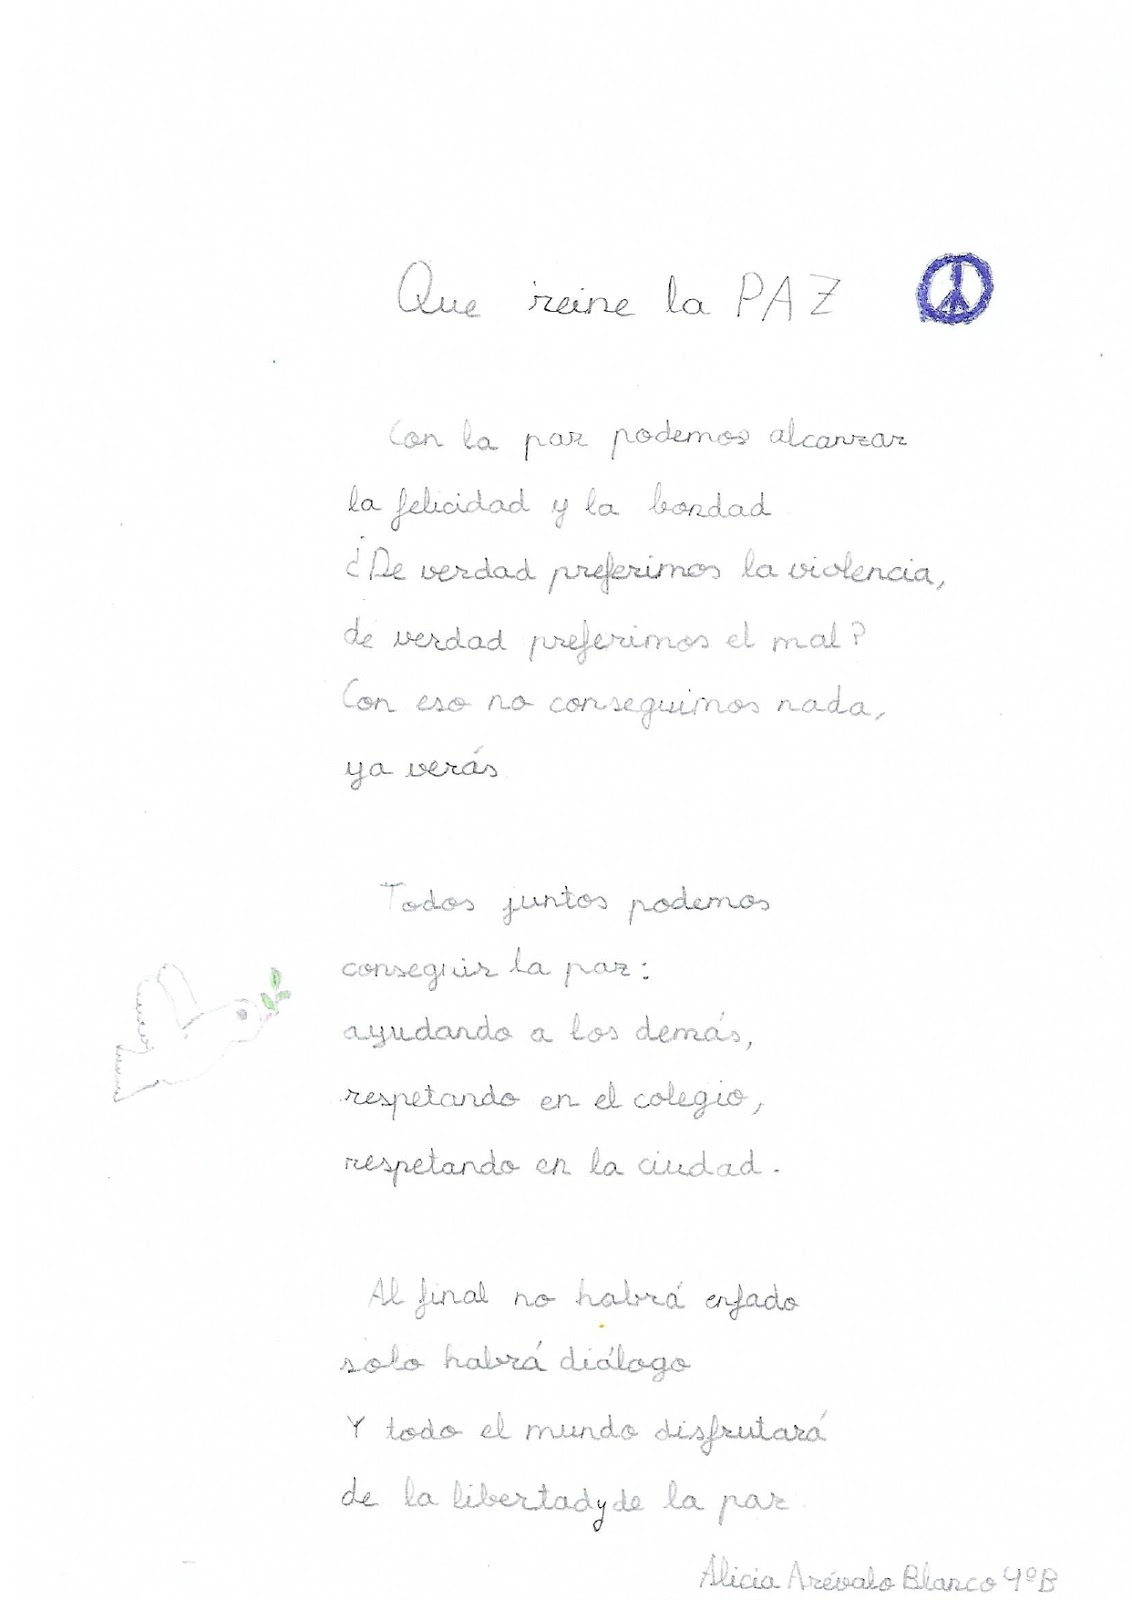 Que reine la PAZ
Con la paz podemos alcanzar
la felicidad y la bondad
¿De verdad preferimos la violencia,
de verdad preferimos el mal?
Con eso no conseguimos nada,
ya verás
Todos juntos podemos
conseguir la paz:
ayudando a los demás,
respetando en el colegio,
respetando en la ciudad.
Al final no habrá enfado
solo habrá diálogo
Y todo el mundo disfrutará
de la libertad y de la paz
Alicia Arévalo Blanco 4ºB